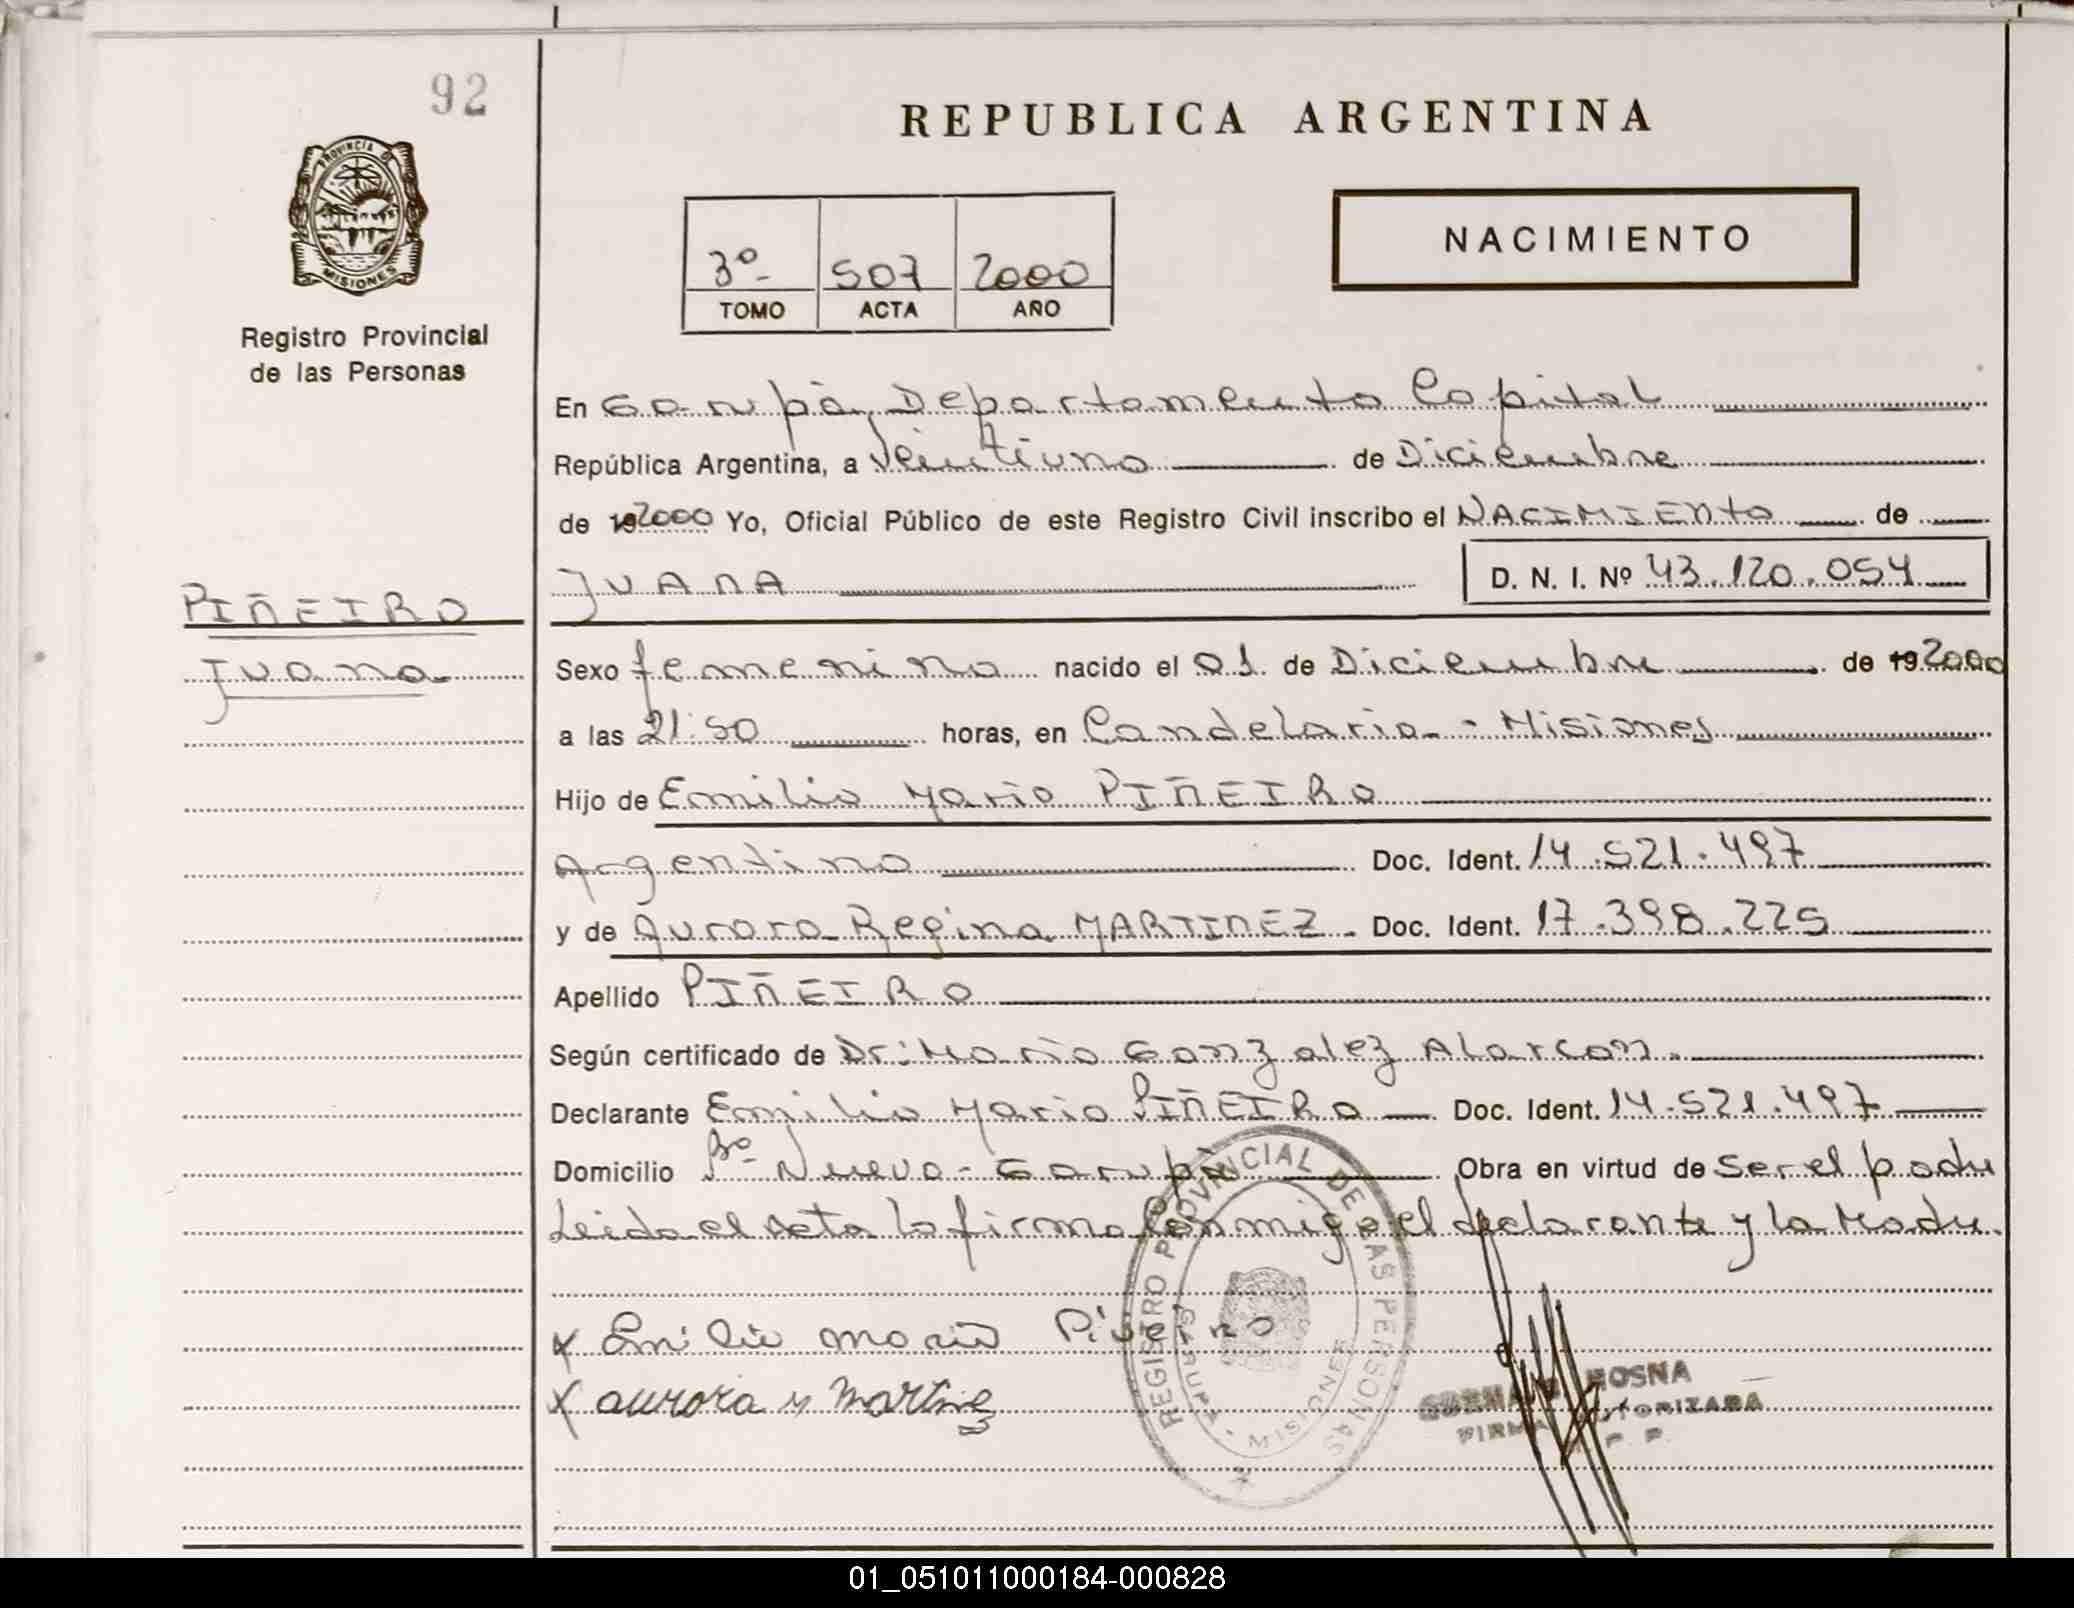 92
REPUBLICA ARGENTINA
PROVINCIA DE
MISIONES
NACIMIENTO
3º 507 2000
TOMO ACTA AÑO
Registro Provincial
de las Personas
En Garupá, Departamento Capital
República Argentina, a Veintiuno de Diciembre
de 192000 Yo, Oficial Público de este Registro Civil inscribo el NACIMIENTO de
JUANA D. N. I. Nº 43.120.054
PIÑEIRO
Juana
Sexo femenino nacido el 01 de Diciembre de 19 2000
a las 21:50 horas, en Candelaria - Misiones
Hijo de Emilio Mario PIÑEIRO
Argentino Doc. Ident. 14.521.497
y de Aurora Regina MARTINEZ - Doc. Ident. 17.398.225
Apellido PIÑEIRO
Según certificado de Dr: Mario Gonzalez Alarcon.
Declarante Emilio Mario PIÑEIRO Doc. Ident. 14.521.497
Domicilio Bº Nuevo - Garupá Obra en virtud de Ser el padre
Leida el acta la firma conmigo el declarante y la Madre.
REGISTRO PROVINCIAL DE LAS PERSONAS
GARUPA - MISIONES
x Emilio Mario Piñeiro
x aurora r Martinez
HOSNA
FIRMA AUTORIZADA
01_051011000184-000828